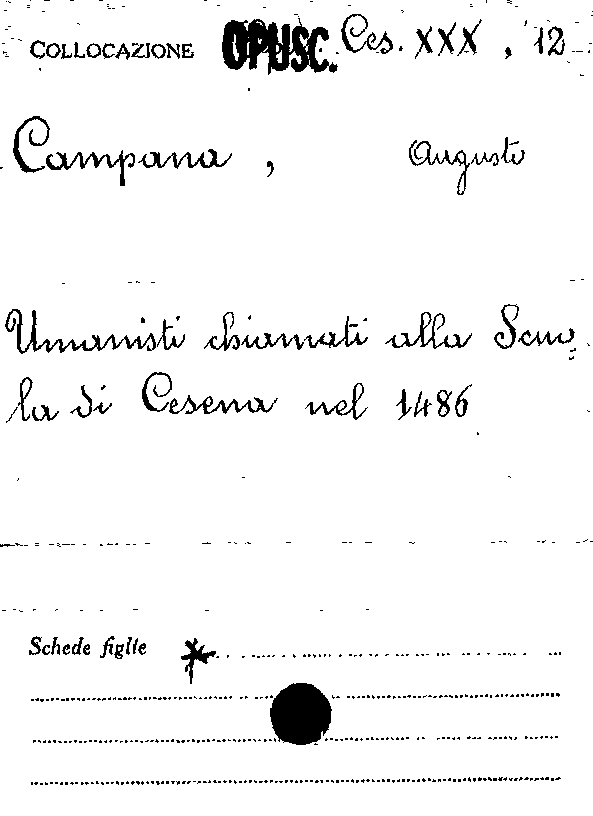 COLLOCAZIONE OPUSC. Ces. XXX, 12
Campana, Augusto
Umanisti chiamati alla Scuo
la di Cesena nel 1486
Schede figlie *